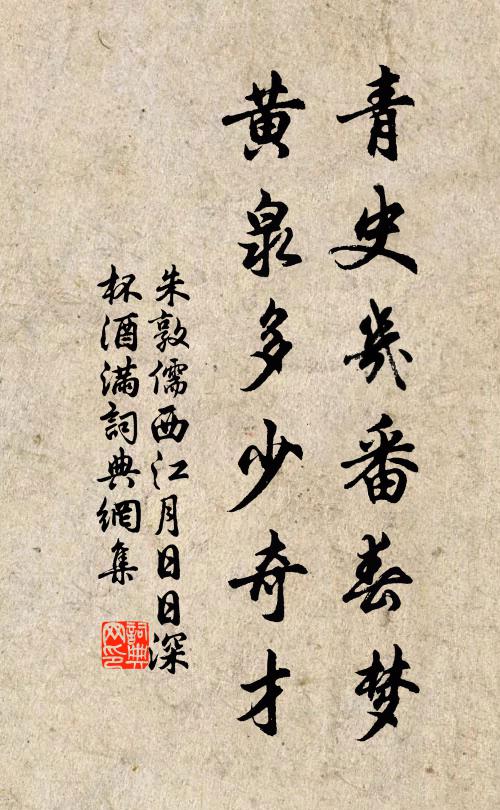 青史幾番春梦
黄泉多少奇才
朱敦儒西江月日日深
杯酒满詞典網集
詞典
网印